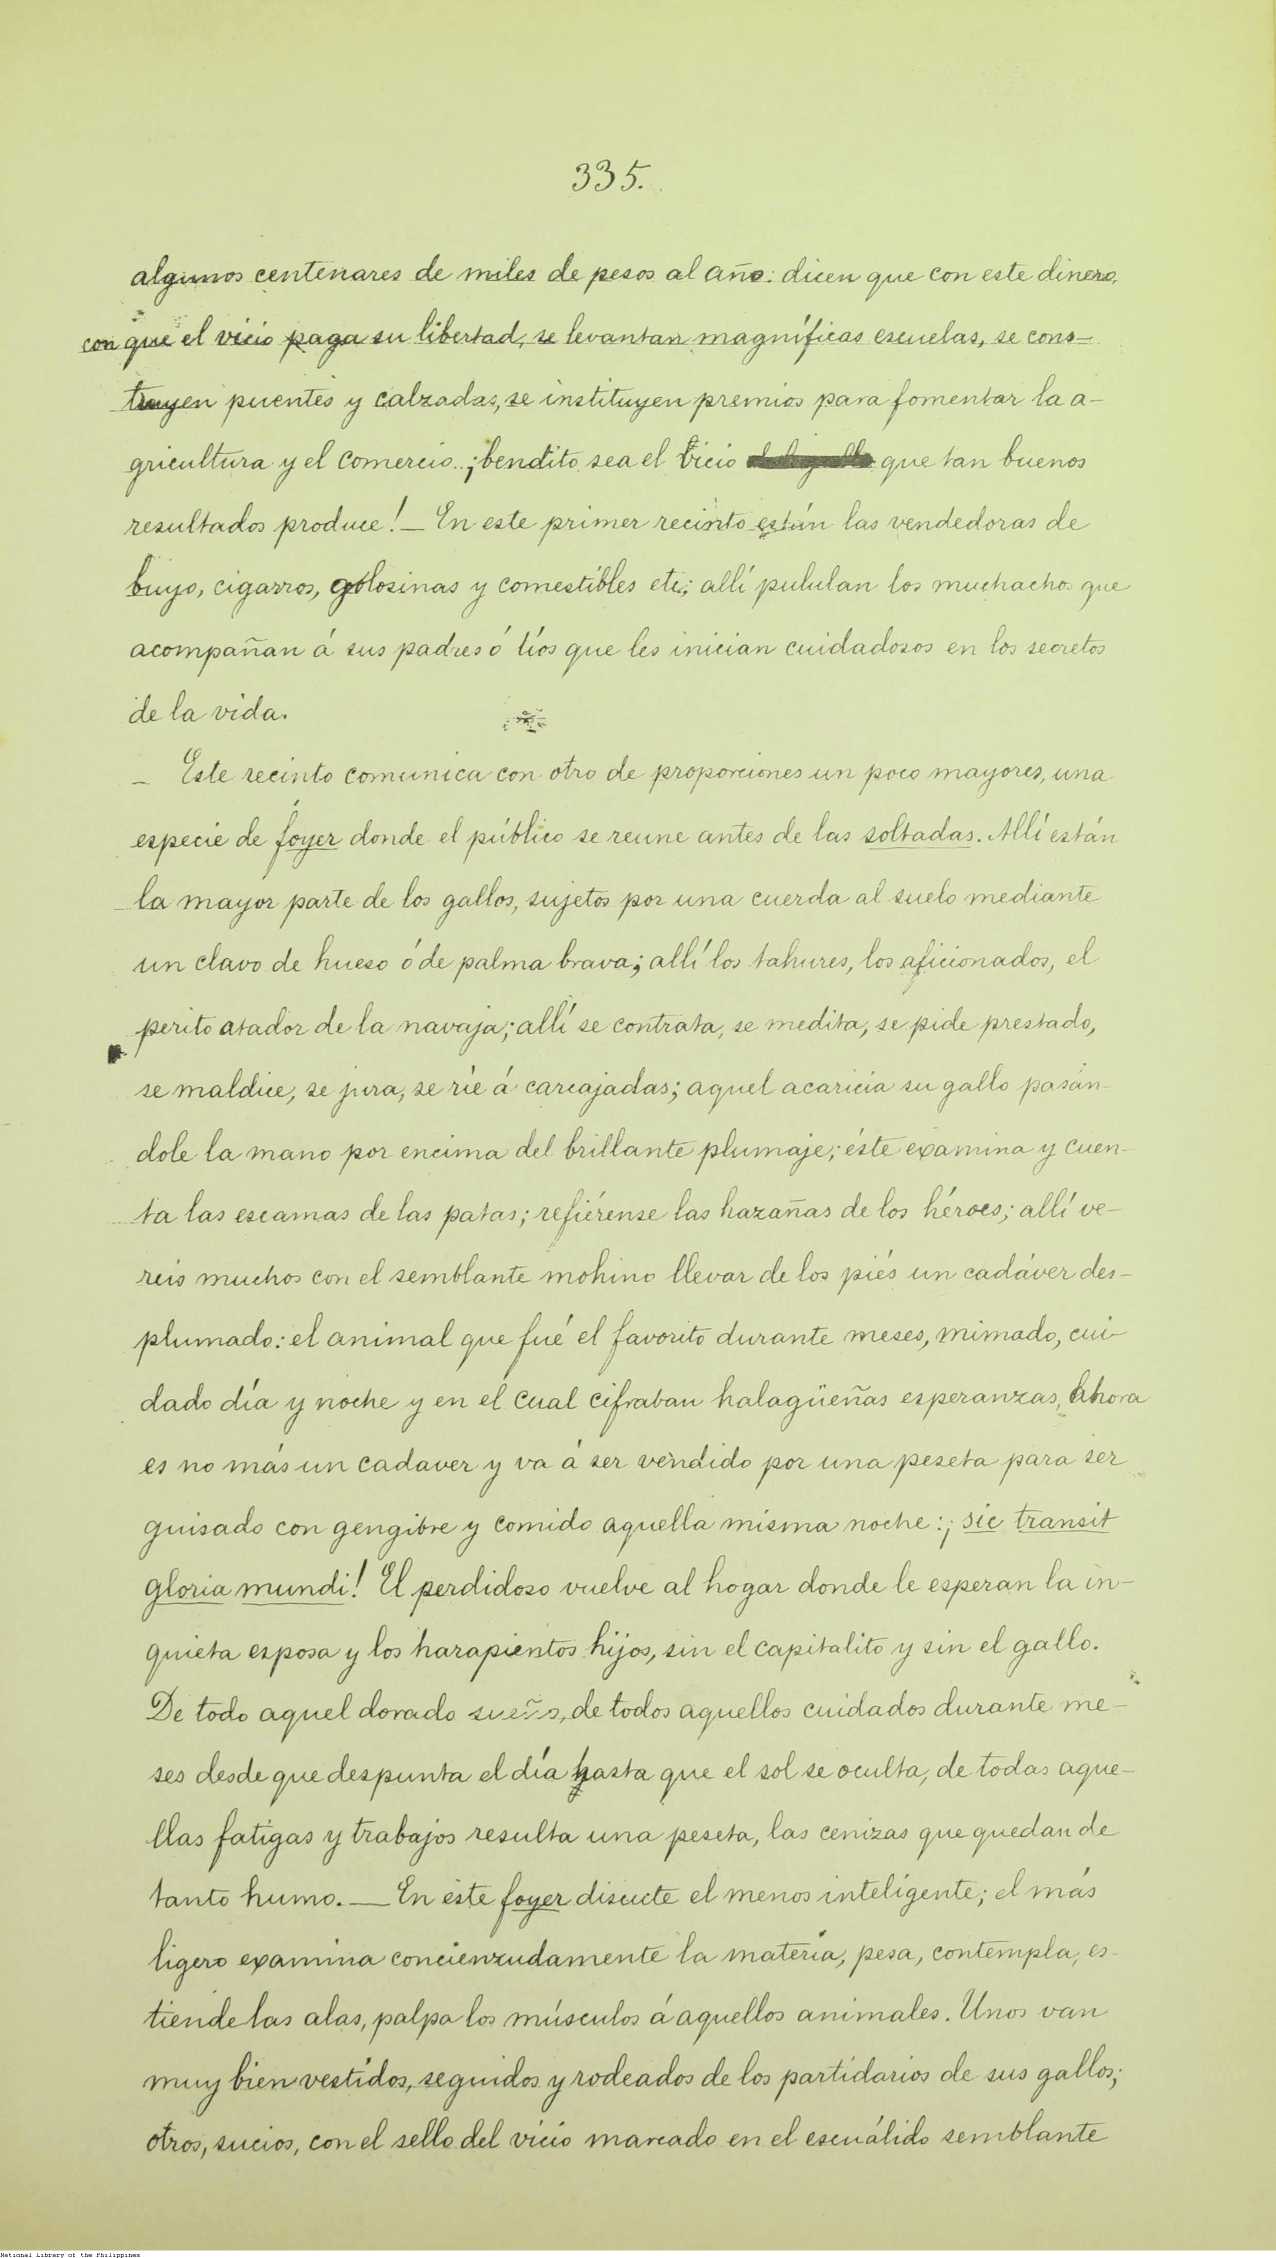 335.
algunos centenares de miles de pesos al año: dicen que con este dinero,
con que el vicio paga su libertad, se levantan magníficas escuelas, se cons-
truyen puentes y calzadas, se instituyen premios para fomentar la a-
gricultura y el comercio..¡bendito sea el vicio que tan buenos
resultados produce! — En este primer recinto están las vendedoras de
buyo, cigarros, golosinas y comestibles etc; allí pululan los muchachos que
acompañan á sus padres ó tíos que les inician cuidadosos en los secretos
de la vida.
— Este recinto comunica con otro de proporciones un poco mayores, una
especie de foyer donde el público se reune antes de las soltadas. Allí están
la mayor parte de los gallos, sujetos por una cuerda al suelo mediante
un clavo de hueso ó de palma brava; allí los tahures, los aficionados, el
perito atador de la navaja; allí se contrata, se medita, se pide prestado,
se maldice, se jura, se ríe á carcajadas; aquel acaricia su gallo pasán-
dole la mano por encima del brillante plumaje; éste examina y cuen-
ta las escamas de las patas; refiérense las hazañas de los héroes; allí ve-
reis muchos con el semblante mohino llevar de los piés un cadáver des-
plumado: el animal que fué el favorito durante meses, mimado, cui-
dado día y noche y en el cual cifraban halagüeñas esperanzas, ahora
es no más un cadaver y va á ser vendido por una peseta para ser
guisado con gengibre y comido aquella misma noche: ¡sic transit
gloria mundi! El perdidoso vuelve al hogar donde le esperan la in-
quieta esposa y los harapientos hijos, sin el capitalito y sin el gallo.
De todo aquel dorado sueño, de todos aquellos cuidados durante me-
ses desde que despunta el día hasta que el sol se oculta, de todas aque-
llas fatigas y trabajos resulta una peseta, las cenizas que quedan de
tanto humo. — En este foyer discute el menos inteligente; el más
ligero examina concienzudamente la materia, pesa, contempla, es-
tiende las alas, palpa los músculos á aquellos animales. Unos van
muy bien vestidos, seguidos y rodeados de los partidarios de sus gallos;
otros, sucios, con el sello del vicio marcado en el escuálido semblante
National Library of the Philippines